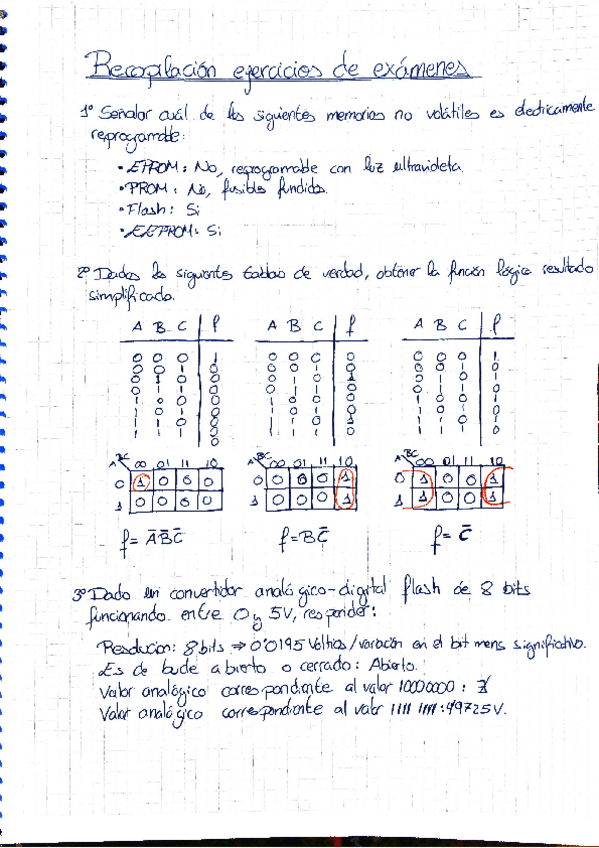 Recopilación ejercicios de exámenes
1º Señalar cuál de las siguientes memorias no volátiles es eléctricamente
reprogramable:
• EPROM: No, reprogramable con luz ultravioleta.
• PROM: No, fusibles fundidos.
• Flash: Si
• EEPROM: Si
2º Dadas las siguientes tablas de verdad, obtener la función lógica resultado
simplificada.
A B C f A B C f A B C f
BC BC BC
A 00 01 11 10 A 00 01 11 10 A 00 01 11 10
0 1 0 0 0 0 0 0 0 1 0 1 0 0 1
1 0 0 0 0 1 0 0 0 1 1 1 0 0 1
f = A̅B̅C̅ f = BC̅ f = C̅
3º Dado un convertidor analógico-digital flash de 8 bits
funcionando entre 0 y 5V, responder:
Resolucion: 8 bits ⇒ 0'0195 Voltios/variación en el bit menos significativo.
Es de bucle abierto o cerrado: Abierto.
Valor analógico correspondiente al valor 10000000:
Valor analógico correspondiente al valor 1111 1111: 4'9725V.